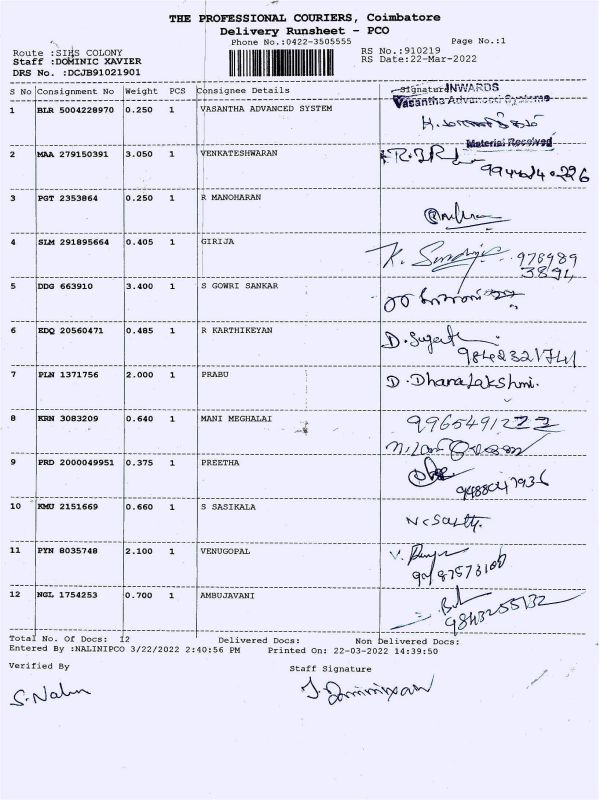 THE PROFESSIONAL COURIERS, Coimbatore
Delivery Runsheet - PCO
Phone No.:0422-3505555 Page No.:1
Route :SIHS COLONY RS No.:910219
Staff :DOMINIC XAVIER RS Date:22-Mar-2022
DRS No. :DCJB91021901
S No Consignment No Weight PCS Consignee Details Signature INWARDS
Vasantha Advanced Systems
1 BLR 5004228970 0.250 1 VASANTHA ADVANCED SYSTEM
Material Received
2 MAA 279150391 3.050 1 VENKATESHWARAN
3 PGT 2353864 0.250 1 R MANOHARAN
4 SLM 291895664 0.405 1 GIRIJA
978989
3894
5 DDG 663910 3.400 1 S GOWRI SANKAR
6 EDQ 20560471 0.485 1 R KARTHIKEYAN
7 PLN 1371756 2.000 1 PRABU D. Dhanalakshmi.
8 KRN 3083209 0.640 1 MANI MEGHALAI
9 PRD 2000049951 0.375 1 PREETHA
10 KMU 2151669 0.660 1 S SASIKALA
11 PYN 8035748 2.100 1 VENUGOPAL
12 NGL 1754253 0.700 1 AMBUJAVANI
9843255132
Total No. Of Docs: 12 Delivered Docs: Non Delivered Docs:
Entered By :NALINIPCO 3/22/2022 2:40:56 PM Printed On: 22-03-2022 14:39:50
Verified By Staff Signature